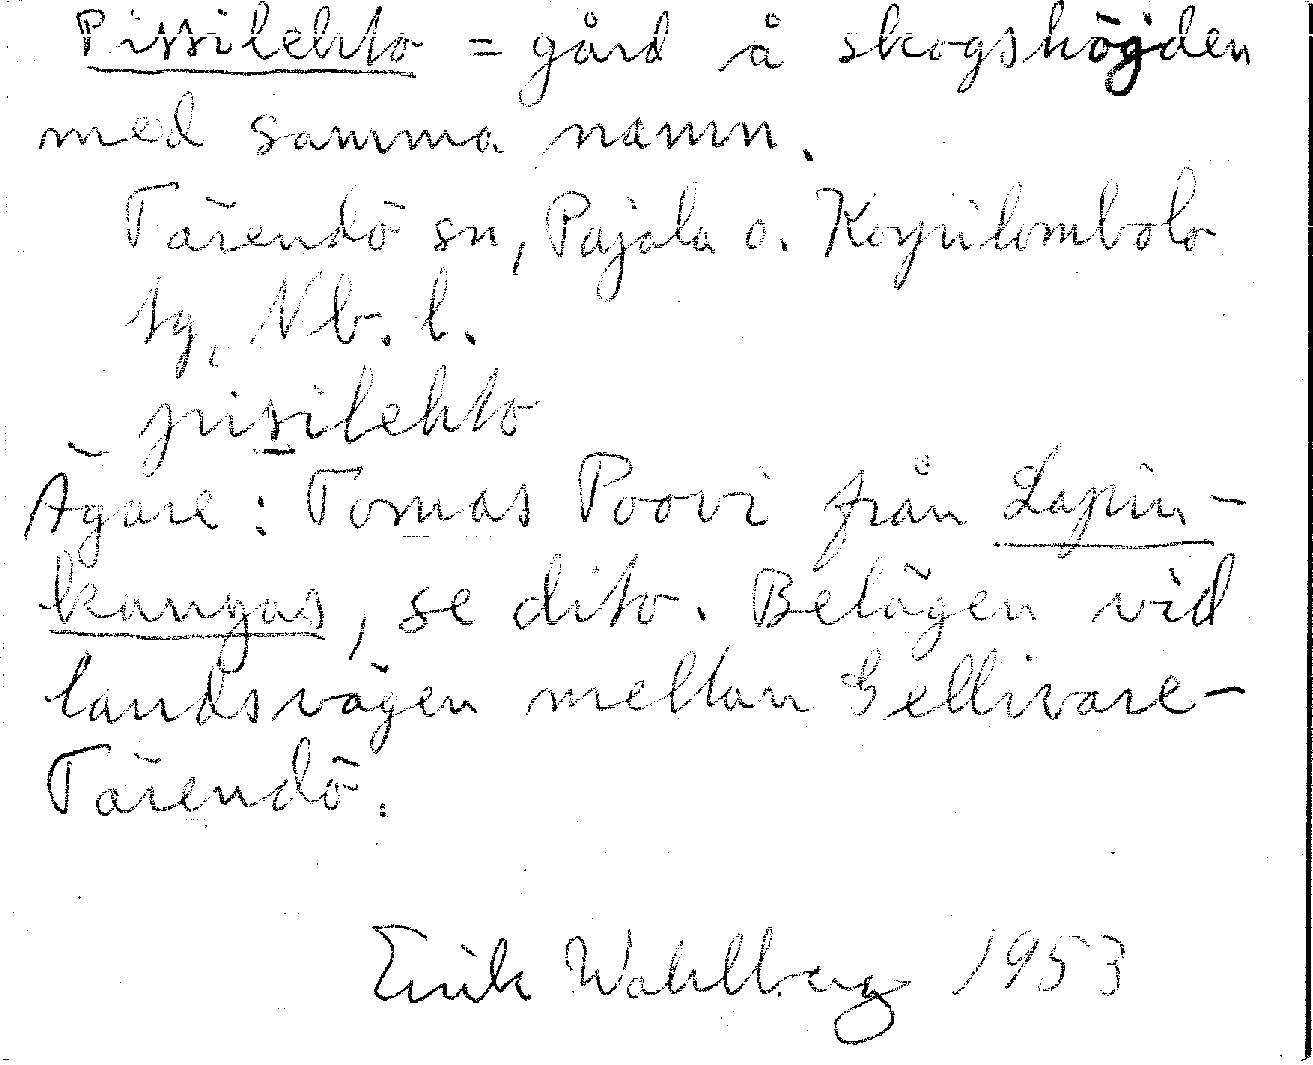 Pissilehto = gård å skogshöjden
med samma namn.
Tärendö sn, Pajala o. Korpilombolo
tg, Nb. l.
pisilehto
Ägare: Tomas Poovi från Lapin-
kangas, se dito. Belägen vid
landsvägen mellan Gellivare-
Tärendö.
Erik Wahlberg 1953